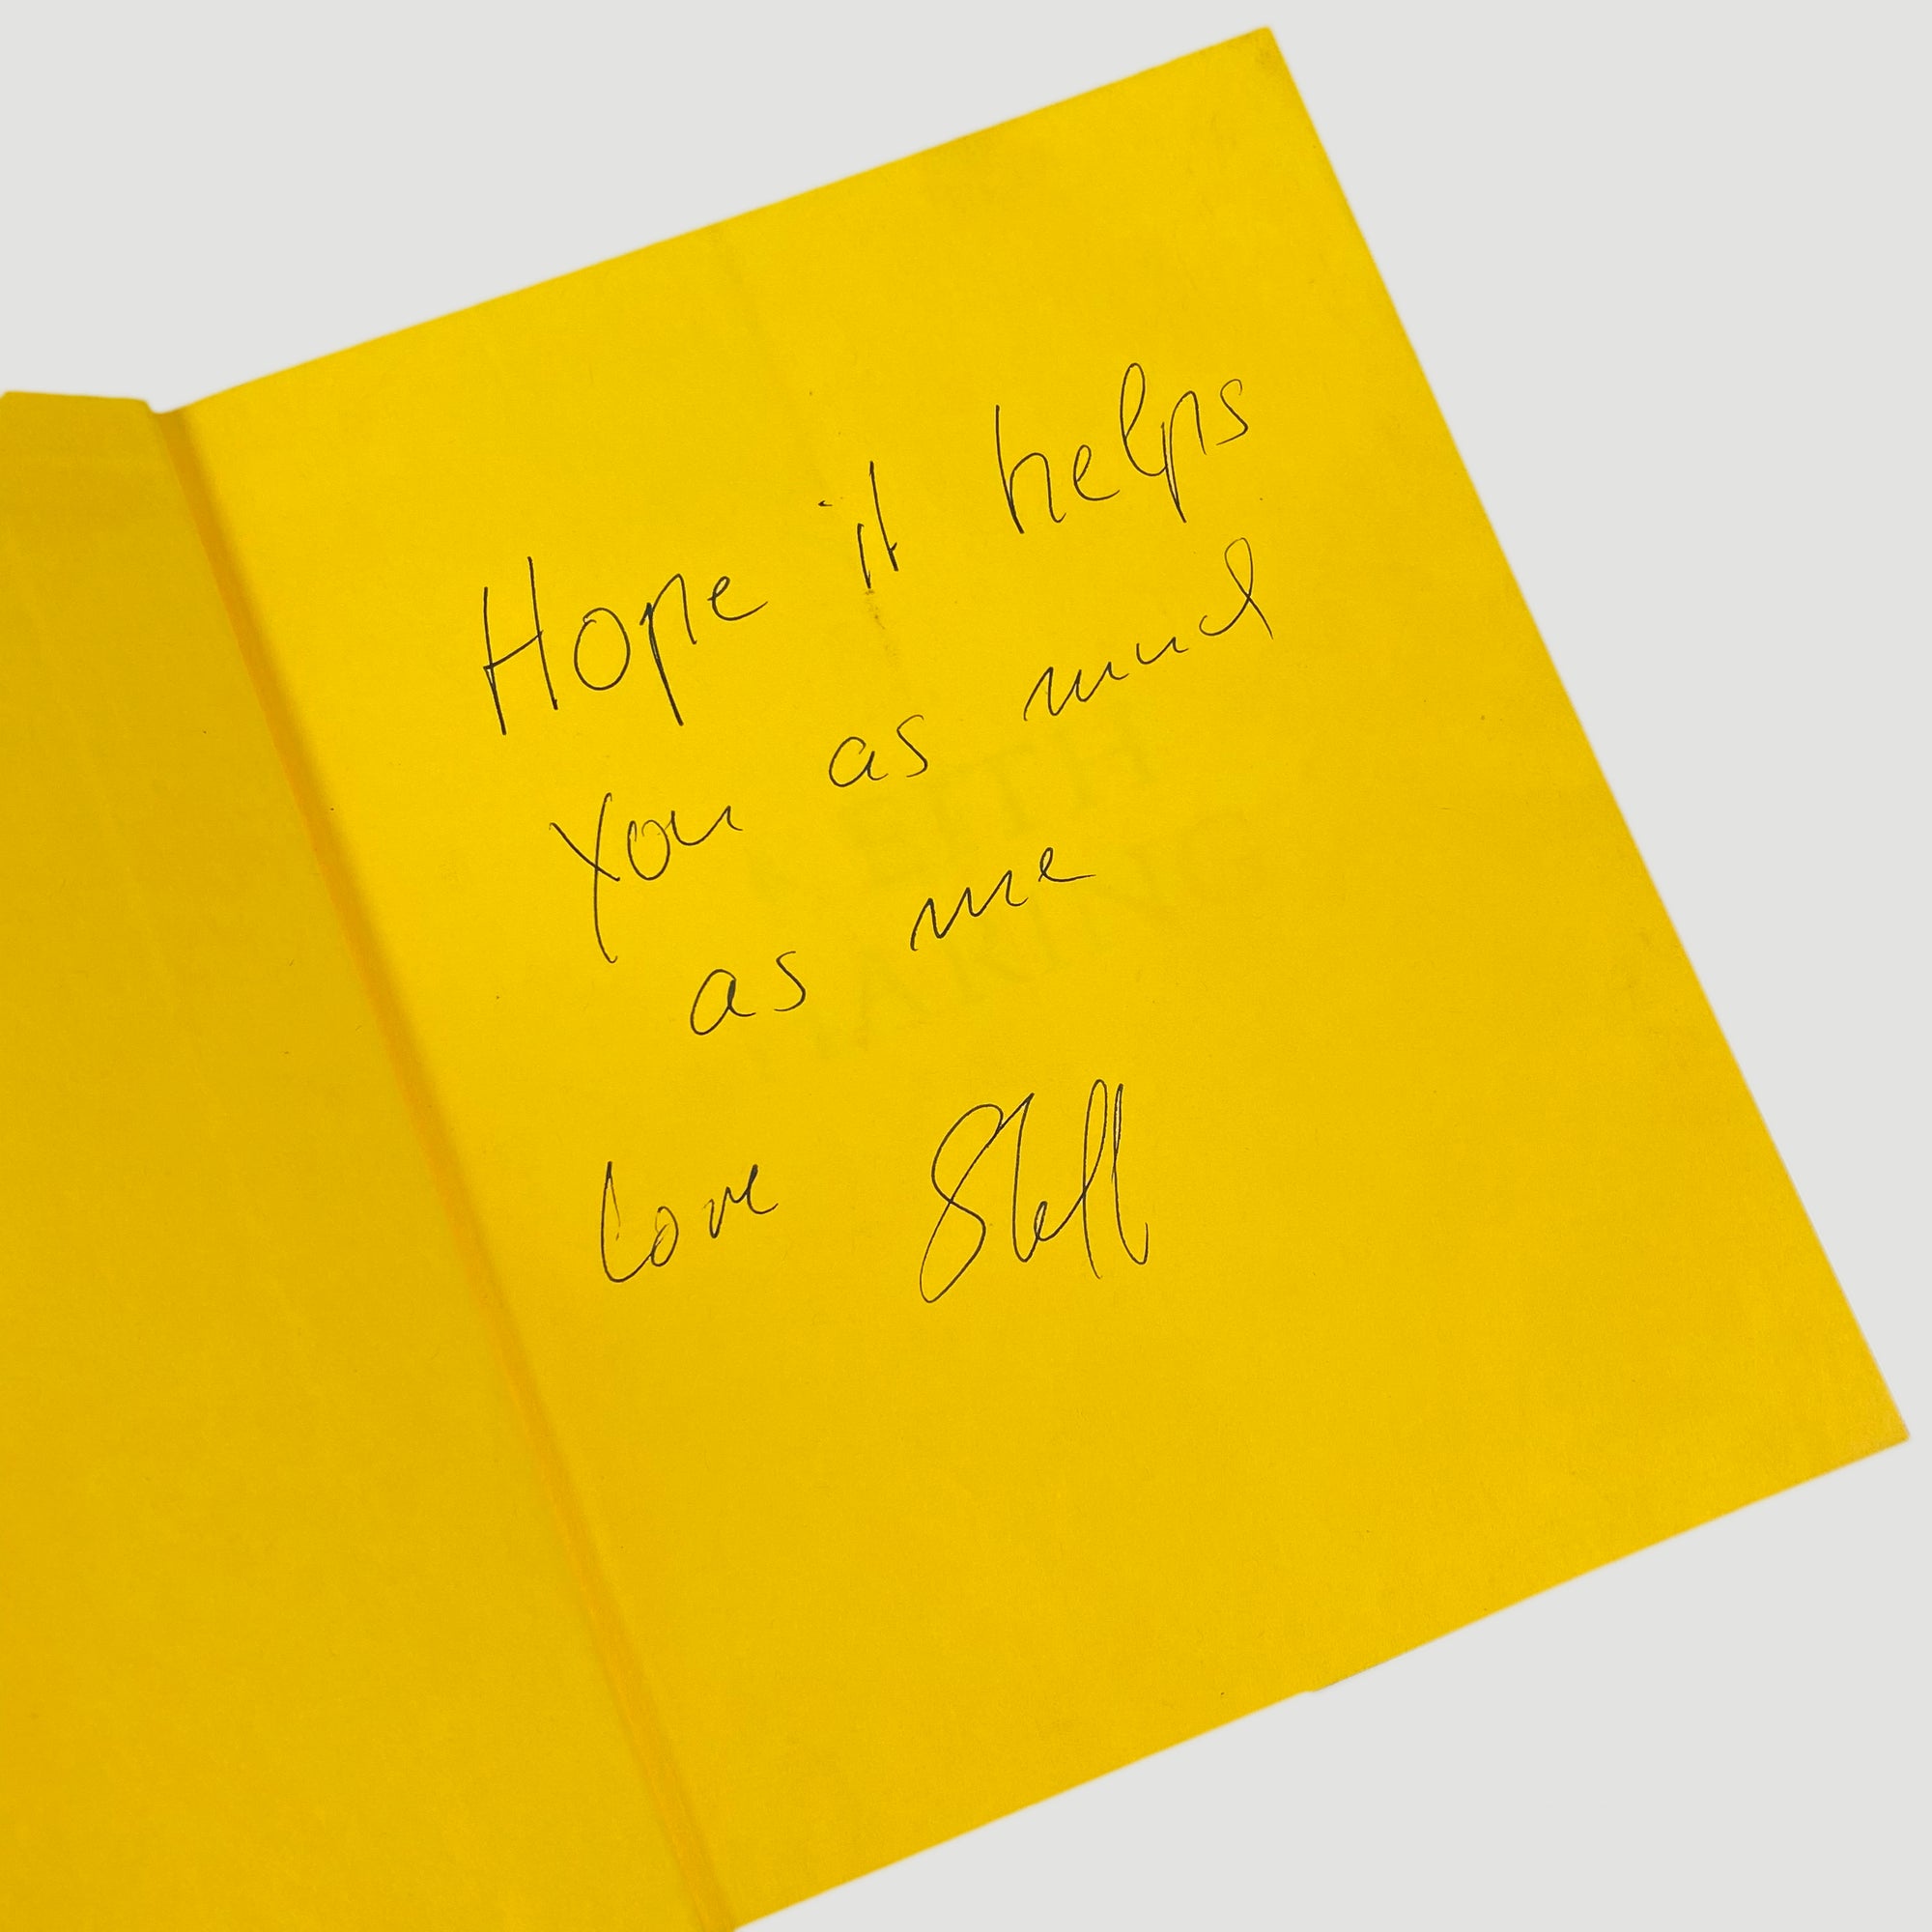 Hope it helps
You as much
as me
Love Stell